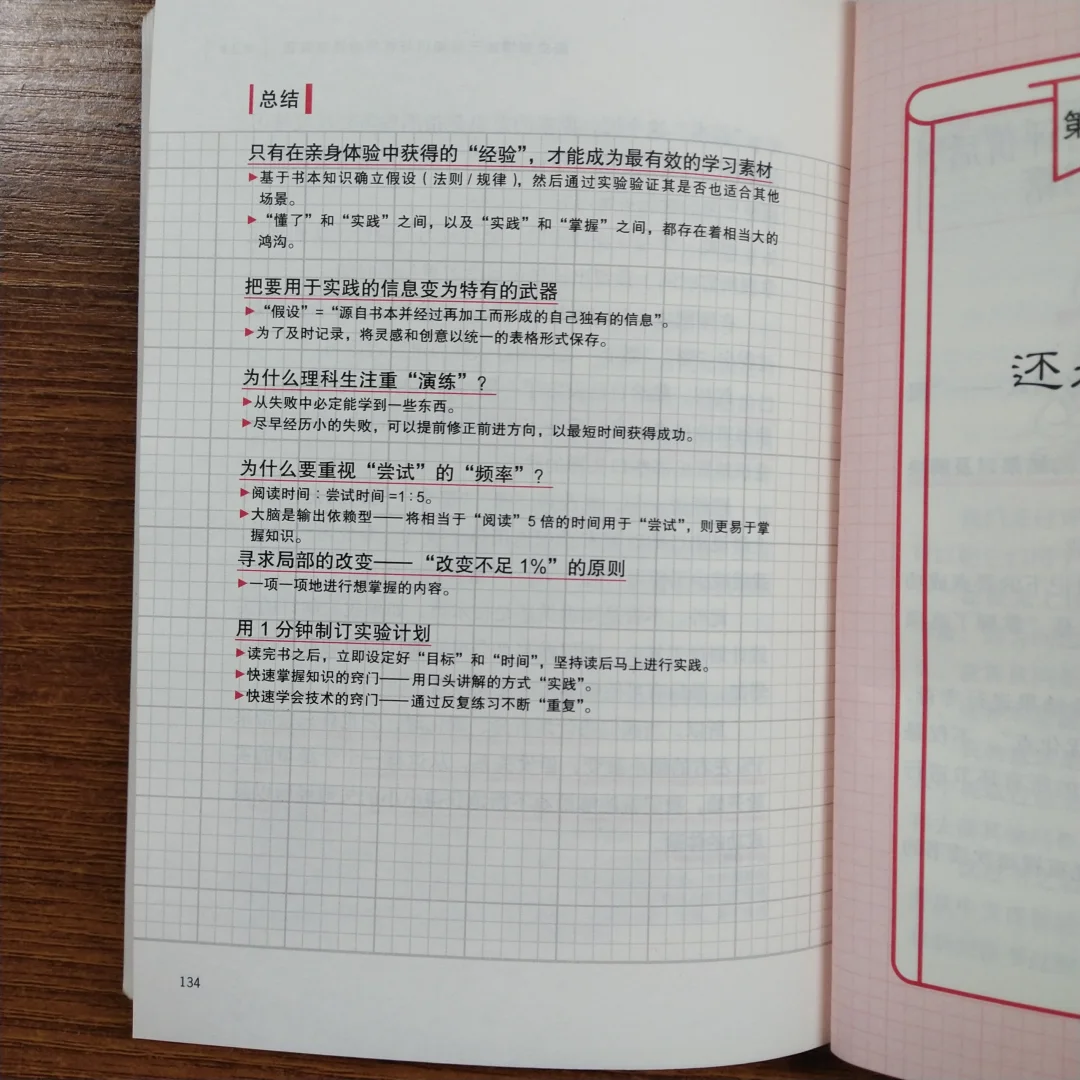 总结
只有在亲身体验中获得的“经验”，才能成为最有效的学习素材
▶基于书本知识确立假设（法则/规律），然后通过实验验证其是否也适合其他
场景。
▶“懂了”和“实践”之间，以及“实践”和“掌握”之间，都存在着相当大的
鸿沟。
把要用于实践的信息变为特有的武器
▶“假设”=“源自书本并经过再加工而形成的自己独有的信息”。
▶为了及时记录，将灵感和创意以统一的表格形式保存。
为什么理科生注重“演练”？
▶从失败中必定能学到一些东西。
▶尽早经历小的失败，可以提前修正前进方向，以最短时间获得成功。
为什么要重视“尝试”的“频率”？
▶阅读时间：尝试时间=1：5。
▶大脑是输出依赖型——将相当于“阅读”5倍的时间用于“尝试”，则更易于掌
握知识。
寻求局部的改变——“改变不足1%”的原则
▶一项一项地进行想掌握的内容。
用1分钟制订实验计划
▶读完书之后，立即设定好“目标”和“时间”，坚持读后马上进行实践。
▶快速掌握知识的窍门——用口头讲解的方式“实践”。
▶快速学会技术的窍门——通过反复练习不断“重复”。
134
第
还